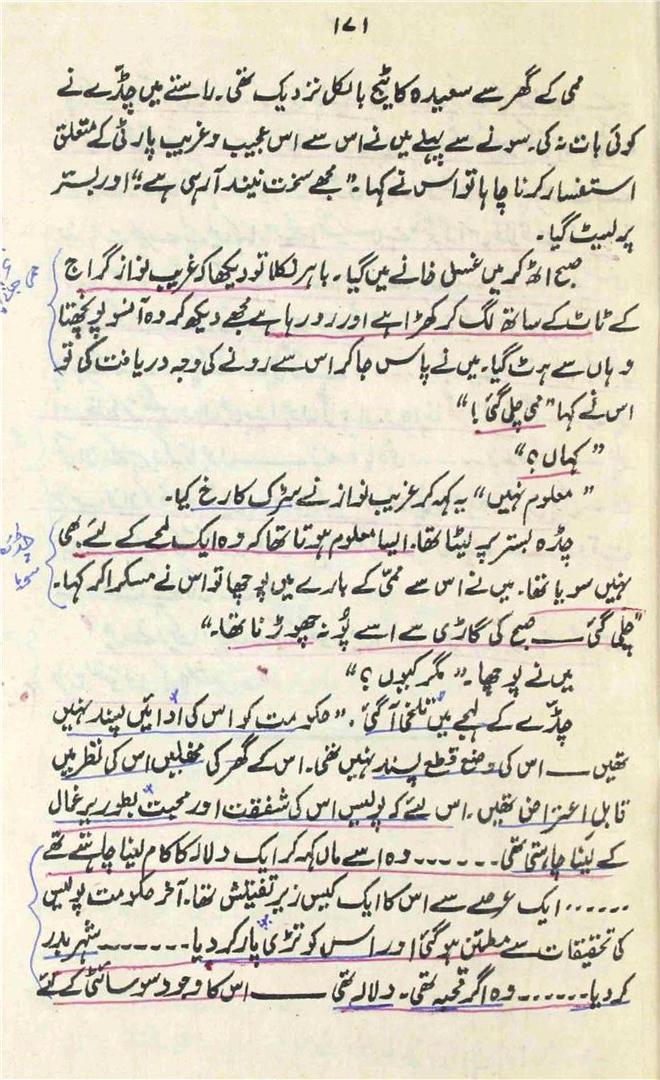 ۱۷۱
ممی کے گھر سے سعیدہ کاٹیج بالکل نزدیک تھی۔ راستے میں چڈے نے
کوئی بات نہ کی۔ سونے سے پہلے میں نے اس سے اس عجیب و غریب پارٹی کے متعلق
استفسار کرنا چاہا تو اس نے کہا۔ "مجھے سخت نیند آرہی ہے" اور بستر
پر لیٹ گیا۔
صبح اٹھ کر میں غسل خانے میں گیا۔ باہر نکلا تو دیکھا کہ غریب نواز گراج
کے ٹاٹ کے ساتھ لگ کر کھڑا ہے اور رو رہا ہے مجھے دیکھ کر وہ آنسو پونچھتا
وہاں سے ہٹ گیا۔ میں نے پاس جا کر اس سے رونے کی وجہ دریافت کی تو
اس نے کہا "ممی چلی گئی!"
"کہاں؟"
"معلوم نہیں" یہ کہہ کر غریب نواز نے سڑک کا رخ کیا۔
چڈہ بستر پر لیٹا تھا۔ ایسا معلوم ہوتا تھا کہ وہ ایک لمحے کے لئے بھی
نہیں سویا تھا۔ میں نے اس سے ممی کے بارے میں پوچھا تو اس نے مسکرا کر کہا۔
"چلی گئی ـــ صبح کی گاڑی سے اسے پُونہ چھوڑنا تھا۔"
میں نے پوچھا۔ "مگر کیوں؟"
چڈے کے لہجے میں تلخی آگئی۔ "حکومت کو اس کی ادائیں پسند نہیں
تھیں ـــ اس کی وضع قطع پسند نہیں تھی۔ اس کے گھر کی محفلیں اس کی نظر میں
قابل اعتراض تھیں۔ اس لئے کہ پولیس اس کی شفقت اور محبت بطور یرغمال
کے لینا چاہتی تھی ...... وہ اسے ماں کہہ کر ایک دلالہ کا کام لینا چاہتے تھے
...... ایک عرصے سے اس کا ایک کیس زیر تفتیش تھا۔ آخر حکومت پولیس
کی تحقیقات سے مطمئن ہوگئی اور اس کو تڑی پار کر دیا ....... شہر بدر
کر دیا ...... وہ اگر قحبہ تھی۔ دلالہ تھی ـــــ اس کا وجود سوسائٹی کے لئے